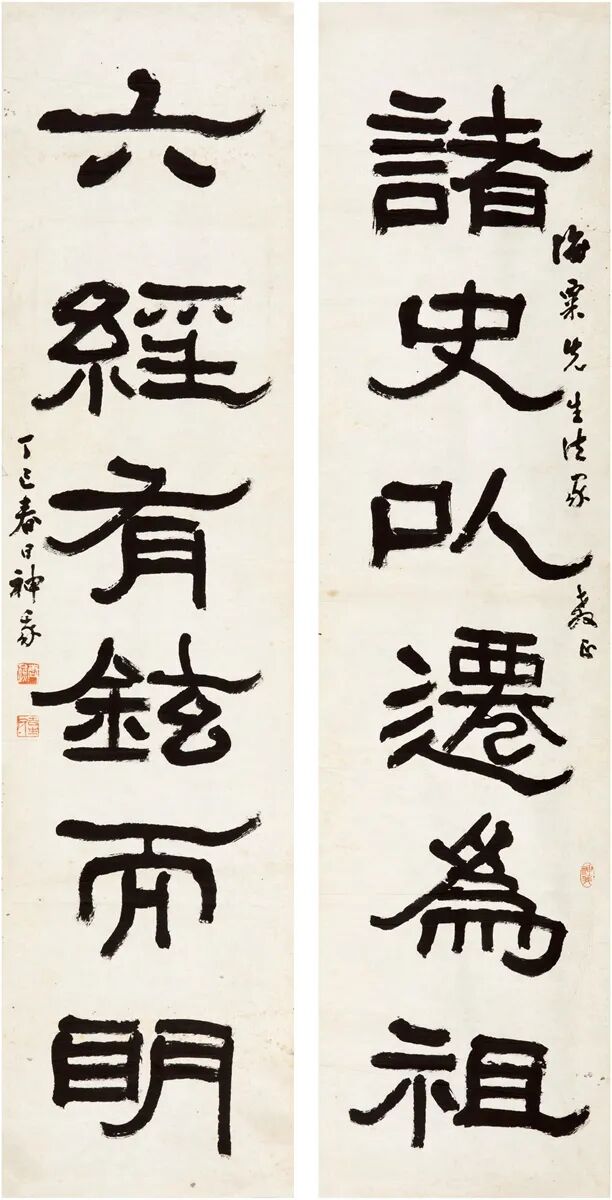 海粟先生法家教正
諸史以遷爲祖
六經有鉉而明
丁巳春日神